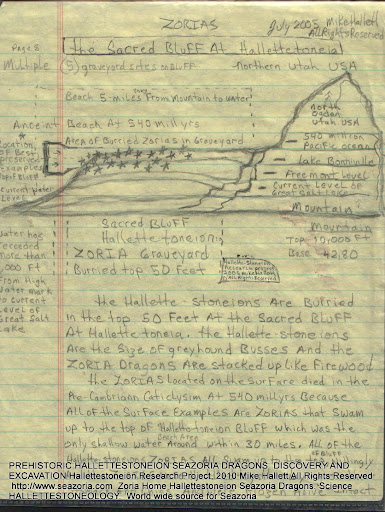 ZORIAS
July 2005 Mike Hallett
All Rights Reserved
Page 8
the Sacred Bluff At Hallettestoneia
Multiple (5) graveyard sites on Bluff Northern Utah USA
Beach 5-miles From Mountain to water
North Ogden Utah USA
Ancient Beach At 540 millyrs
Area of Burried Zorias in Graveyard
540 million Pacific ocean
Lake Bonniville
Current Level of Great Salt Lake
Location of Best preserved Examples
Current Water Level
Mountain
Sacred Bluff
Hallette-toneion
ZORIA Graveyard
Burried top 50 Feet
Mountain
Top 10,005 FT
Base 4280
Water has receeded more than
,000 FT
From High
Water mark
to current
Level of
Great Salt
Lake
the Hallette-Stoneions Are Burried
in the top 50 Feet At the Sacred Bluff
At Hallettetoneia. the Hallette-Stoneions
Are the Size of greyhound Busses And the
ZORIA Dragons Are stacked up Like Firewood
the ZORIAS Located on the surface died in the
Pre-Cambriann Caticlysim At 540 millyrs Because
All of the Surface Examples Are ZORIAS that Swam
up to the top of Hallettetoneion Bluff which was the
only shallow water Beach Area Around within 30 miles. All of the
PREHISTORIC HALLETTESTONEION SEAZORIA DRAGONS DISCOVERY AND
EXCAVATION Hallettestoneion Research Project. 2010 Mike Hallett All Rights Reserved
http://www.seazoria.com Zoria Home Hallettestoneion Seazoria Dragons Science
HALLETTESTONEOLOGY World wide source for Seazoria